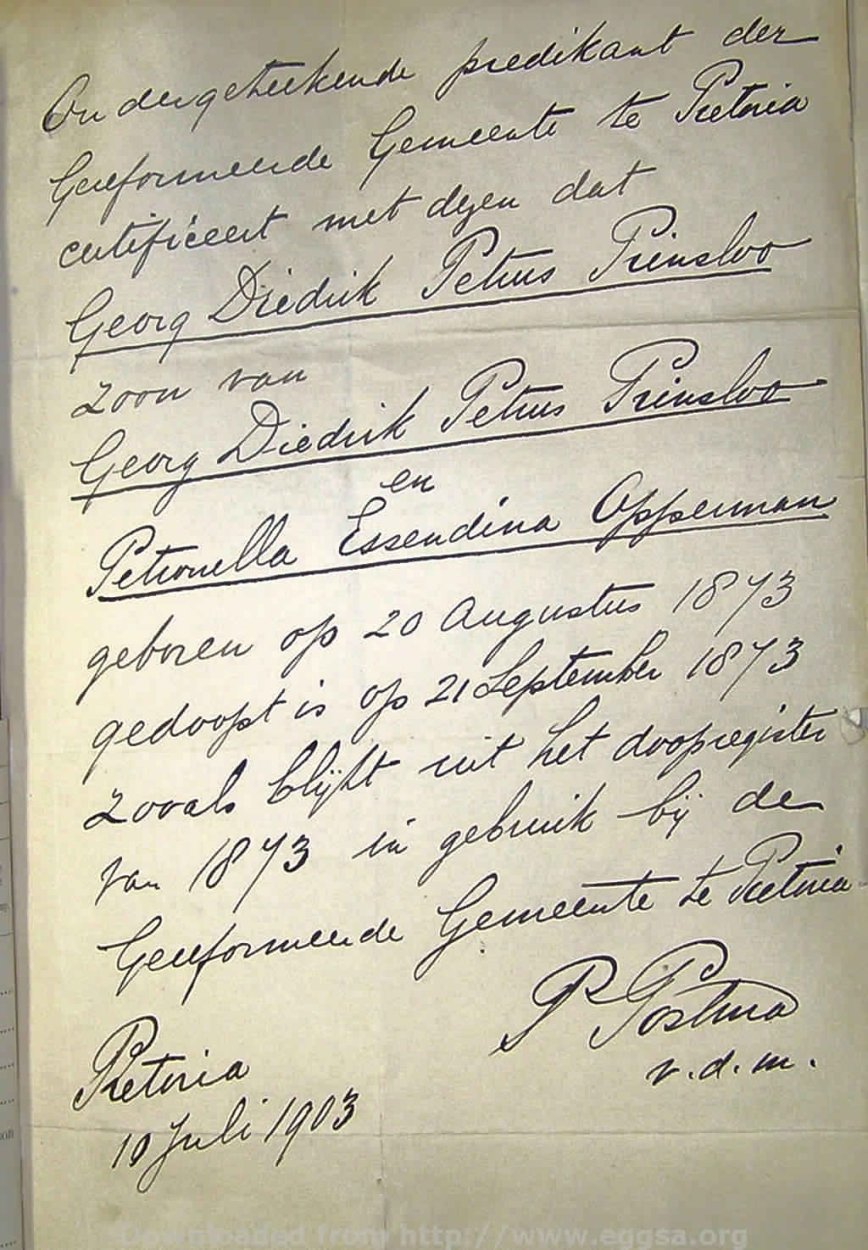 Ondergeteekende predikant der
Gereformeerde Gemeente te Pretoria
certificeert met dezen dat
Georg Diedrik Petrus Prinsloo
zoon van
Georg Diedrik Petrus Prinsloo
en
Petronella Essendina Opperman
geboren op 20 Augustus 1873
gedoopt is op 21 September 1873
zooals blijkt uit het doopregister
van 1873 in gebruik bij de
Gereformeerde Gemeente te Pretoria
P Postma
v.d.m.
Pretoria
10 Juli 1903
Downloaded from http://www.eggsa.org